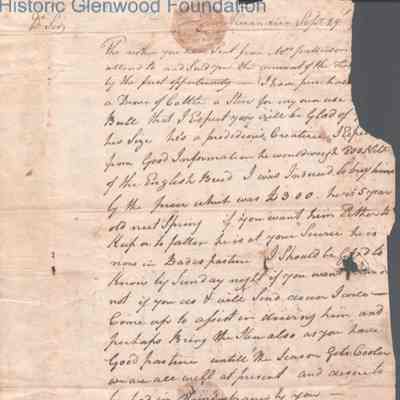 Historic Glenwood Foundation
Dr Sir, Sept 29
The within you have sent from Mr
attend to and send you the amount of the
by the first opportunity I have purchased
a Drove of Cattle a Steer for my own use
Bull that I Expect you will be Glad of
his Size he's a prodidious Creature I Expect
from Good Information he would weigh 800
of the English Breed I was Induced to buy him
by the price which was £300. he is 5 year
old next Spring if you want him Either to
Keep or to fatten he is at your Service he is
now in Bades pasture I Should be Glad to
Know by Sunday night if you want him
not if you do I will Send down
Come up to assist in driveing him and
perhaps Bring the also as you have
Good pasture untill the Season Gets Cooler
we are all well at present and desire to
be in by you